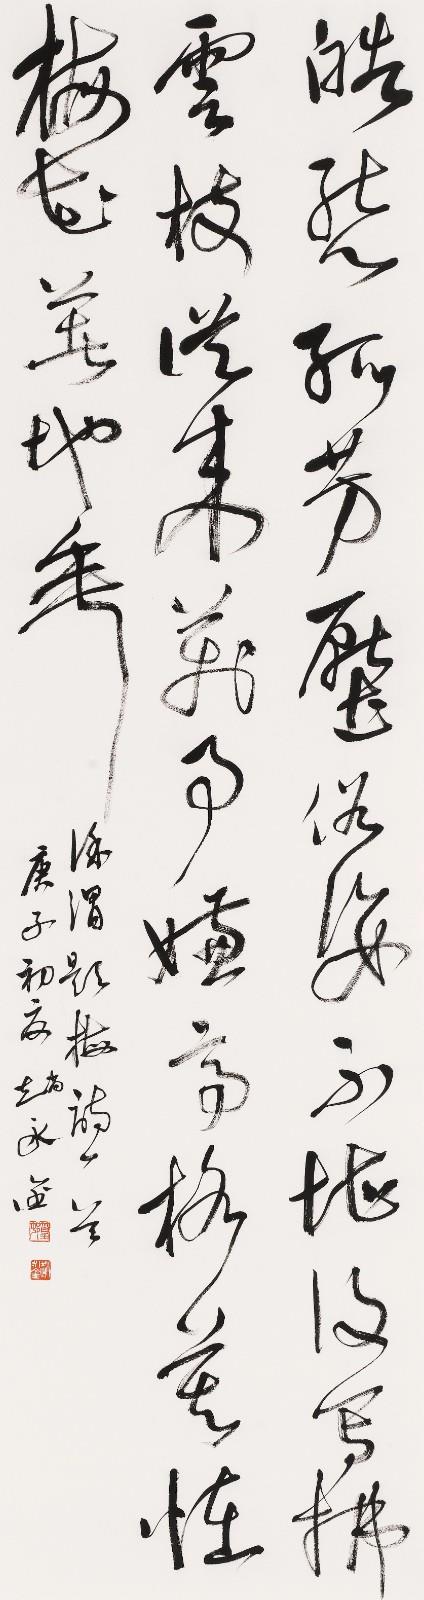 皓態孤芳壓俗姿不堪復寫拂
雲枝從來萬事嫌高格莫怪
梅花著地垂
徐渭題梅詩一首
庚子初夏趙永金